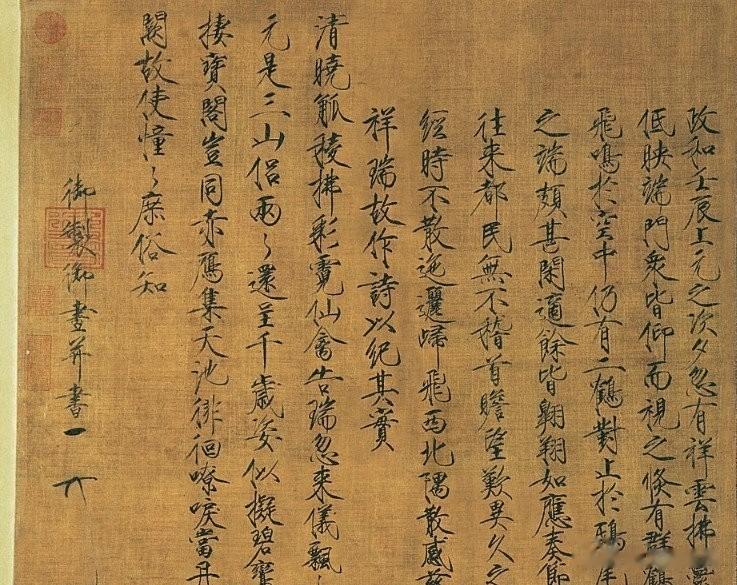 政和壬辰上元之次夕忽有祥雲拂
低映端門衆皆仰而視之倏有群鶴
飛鳴於空中仍有二鶴對止於鴟
之端頗甚閑適餘皆翱翔如應奏節
往来都民無不稽首瞻望歎異久之
經時不散迤邐歸飛西北隅散感茲
祥瑞故作詩以紀其實
清曉觚稜拂彩霓仙禽告瑞忽来儀飄〻
元是三山侶兩〻還呈千歲姿似擬碧鸞
棲寶閣豈同赤鴈集天池徘徊嘹唳當丹
闕故使憧〻庶俗知
御製御畫并書